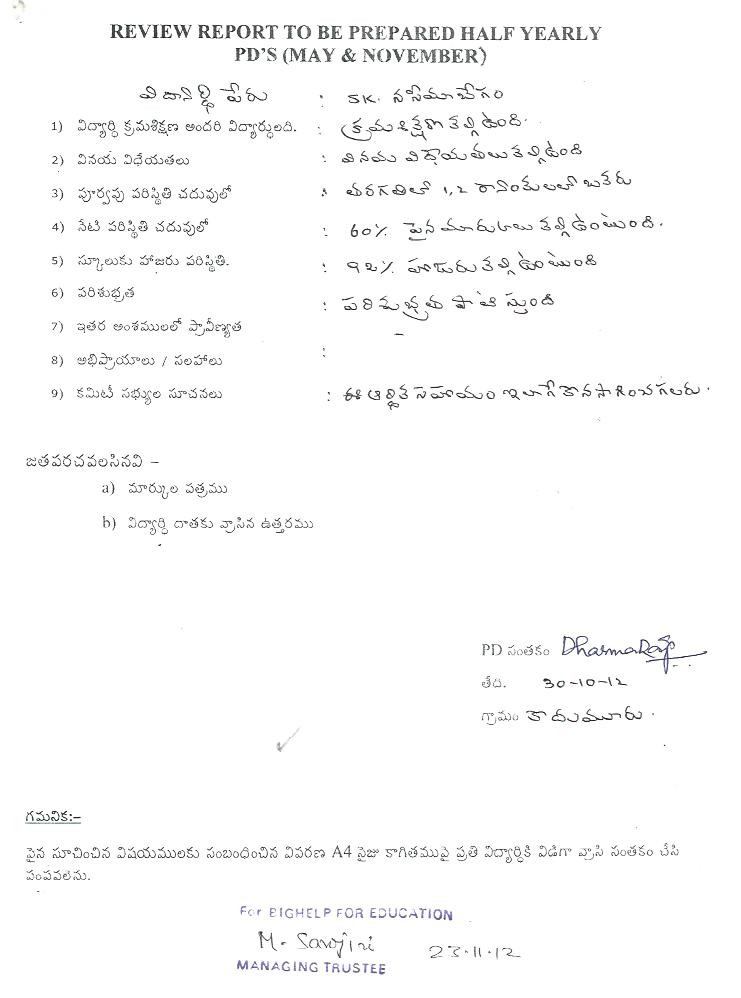 REVIEW REPORT TO BE PREPARED HALF YEARLY
PD'S (MAY & NOVEMBER)
పేరు : SK. నసీమా బేగం
1) విద్యార్ధి క్రమశిక్షణ అందరి విద్యార్ధులది. : క్రమశిక్షణ కల్గి ఉంది.
2) వినయ విధేయతలు : వినయ విధేయతలు కల్గి ఉంది
3) పూర్వపు పరిస్థితి చదువులో : తరగతిలో 1, 2 రాంకులలో ఒకరు
4) నేటి పరిస్థితి చదువులో : 60% పైన మార్కులు కల్గి ఉంటుంది.
5) స్కూలుకు హాజరు పరిస్థితి. : 92% హాజరు కల్గి ఉంటుంది
6) పరిశుభ్రత : పరిశుభ్రత పాటిస్తుంది
7) ఇతర అంశములలో ప్రావీణ్యత –
8) అభిప్రాయాలు / సలహాలు :
9) కమిటీ సభ్యుల సూచనలు : ఈ ఆర్థిక సహాయం ఇలాగే కొనసాగించగలరు.
జతపరచవలసినవి –
a) మార్కుల పత్రము
b) విద్యార్ధి దాతకు వ్రాసిన ఉత్తరము
PD సంతకం
తేది. 30-10-12
గ్రామం
గమనిక:–
పైన సూచించిన విషయములకు సంబంధించిన వివరణ A4 సైజు కాగితముపై ప్రతి విద్యార్ధికి విడిగా వ్రాసి సంతకం చేసి
పంపవలెను.
For BIGHELP FOR EDUCATION
M. Sarojini 23.11.12
MANAGING TRUSTEE